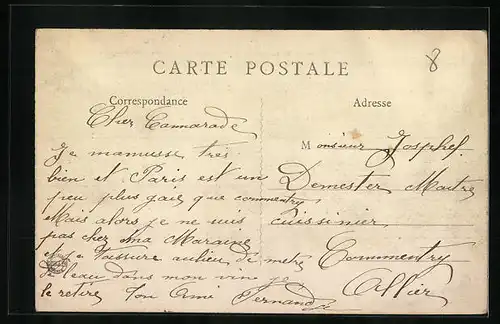 8
CARTE POSTALE
Correspondance
Adresse
Cher Camarade
Je mamusse très
bien et Paris est un
peu plus gaie que commentry
Mais alors je ne suis
pas chez ma Maraine
et je tassure aulieu de metre
de leau dans mon vin je
le retire ton Ami Fernand
Monsieur Josphef
Demester Maitre
cuissinier
Commentry
Allier